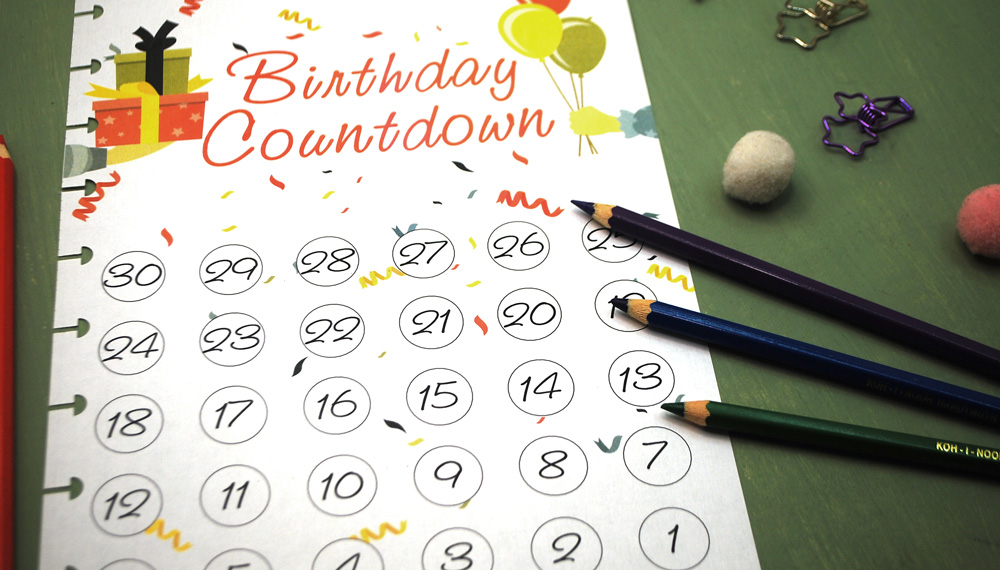 Birthday
Countdown
30 29 28 27 26 25
24 23 22 21 20
18 17 16 15 14 13
12 11 10 9 8 7
5 4 3 2 1
KOH-I-NOO